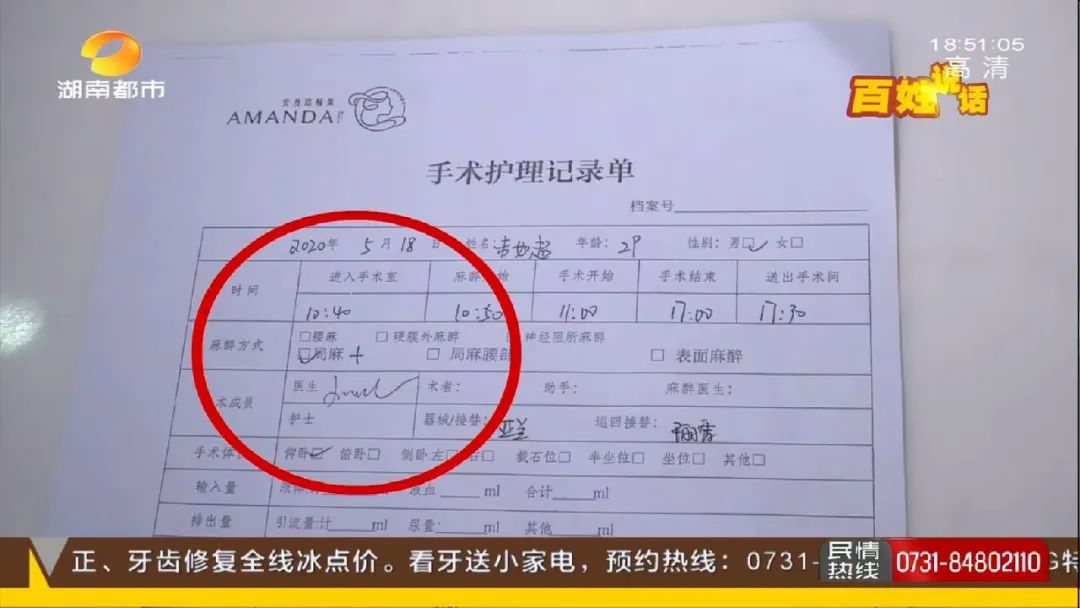 湖南都市
18:51:05
高清
百姓说话
AMANDA
手术护理记录单
档案号
2020年 5月 18日 姓名 年龄: 29 性别: 男□ 女□
时间 进入手术室 麻醉开始 手术开始 手术结束 送出手术间
10:40 10:50 11:00 17:00 17:30
麻醉方式 □腰麻 □硬膜外麻醉 神经阻所麻醉
□局麻+ □局麻腰部 □表面麻醉
术成员 医生 术者: 助手: 麻醉医生:
护士 器械/接替: 巡回接替:
手术体位 仰卧□ 俯卧□ 侧卧:左□右□ 截石位□ 半坐位□ 坐位□ 其他□
输入量 ml 合计 ml
排出量 引流量:计 ml 尿量: ml 其他 ml
正、牙齿修复全线冰点价。看牙送小家电，预约热线：0731-
民情热线 0731-84802110